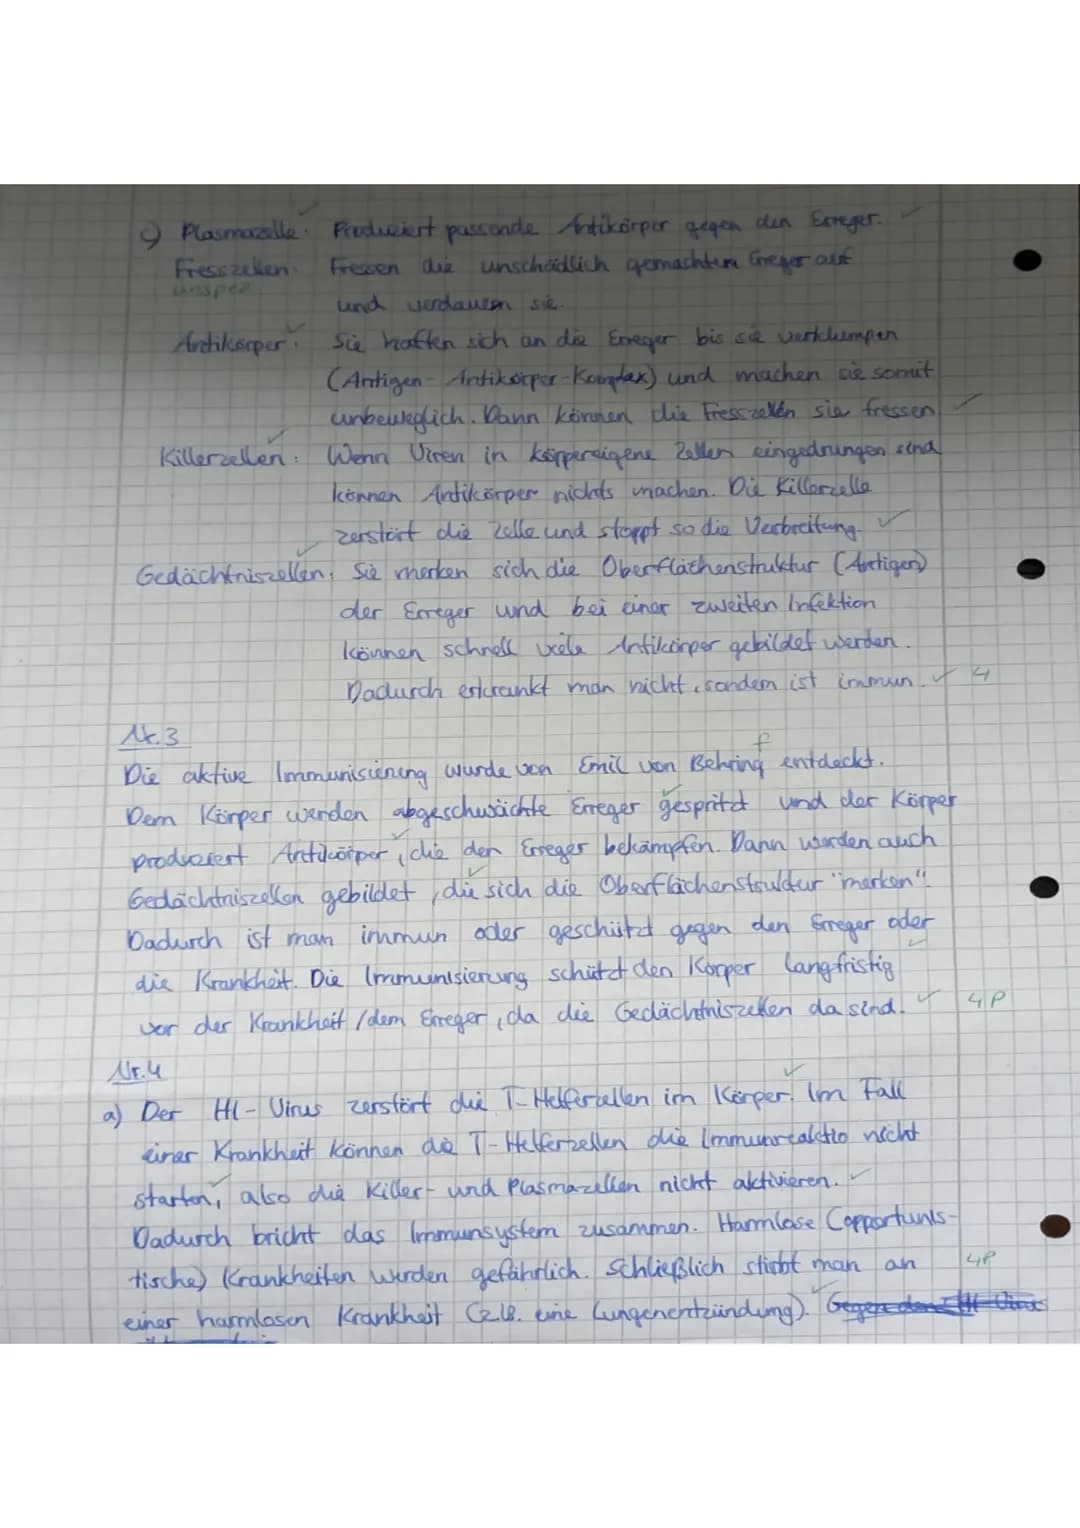 c) Plasmazelle: Produziert passende Antikörper gegen den Erreger.
Fresszellen: Fressen die unschädlich gemachten Erreger auf
unspez.
und verdauen sie.
Antikörper: Sie haften sich an die Erreger bis sie verklumpen
(Antigen-Antikörper-Komplex) und machen sie somit
unbeweglich. Dann können die Fresszellen sie fressen.
Killerzellen: Wenn Viren in körpereigene Zellen eingedrungen sind
können Antikörper nichts machen. Die Killerzelle
zerstört die Zelle und stoppt so die Verbreitung.
Gedächtniszellen: Sie merken sich die Oberflächenstruktur (Antigen)
der Erreger und bei einer zweiten Infektion
können schnell viele Antikörper gebildet werden.
Dadurch erkrankt man nicht, sondern ist immun. 4
Nr.3
f
Die aktive Immunisierung wurde von Emil von Behring entdeckt.
Dem Körper werden abgeschwächte Erreger gespritzt und der Körper
produziert Antikörper, die den Erreger bekämpfen. Dann werden auch
Gedächtniszellen gebildet, die sich die Oberflächenstruktur "merken".
Dadurch ist man immun oder geschützt gegen den Erreger oder
die Krankheit. Die Immunisierung schützt den Körper langfristig
vor der Krankheit / dem Erreger, da die Gedächtniszellen da sind. 4P
Nr.4
a) Der HI-Virus zerstört die T-Helferzellen im Körper. Im Fall
einer Krankheit können die T-Helferzellen die Immunreaktio nicht
starten, also die Killer- und Plasmazellen nicht aktivieren.
Dadurch bricht das Immunsystem zusammen. Harmlose (opportunis-
tische) Krankheiten werden gefährlich. Schließlich stirbt man an 4P
einer harmlosen Krankheit (z.B. eine Lungenentzündung). Gegen den HI-Virus